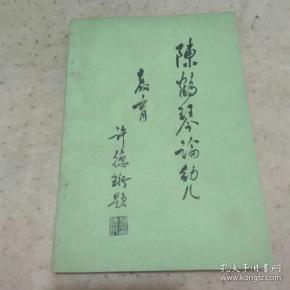 陳鶴琴論幼儿
教育
许德珩题
孔夫子旧书网